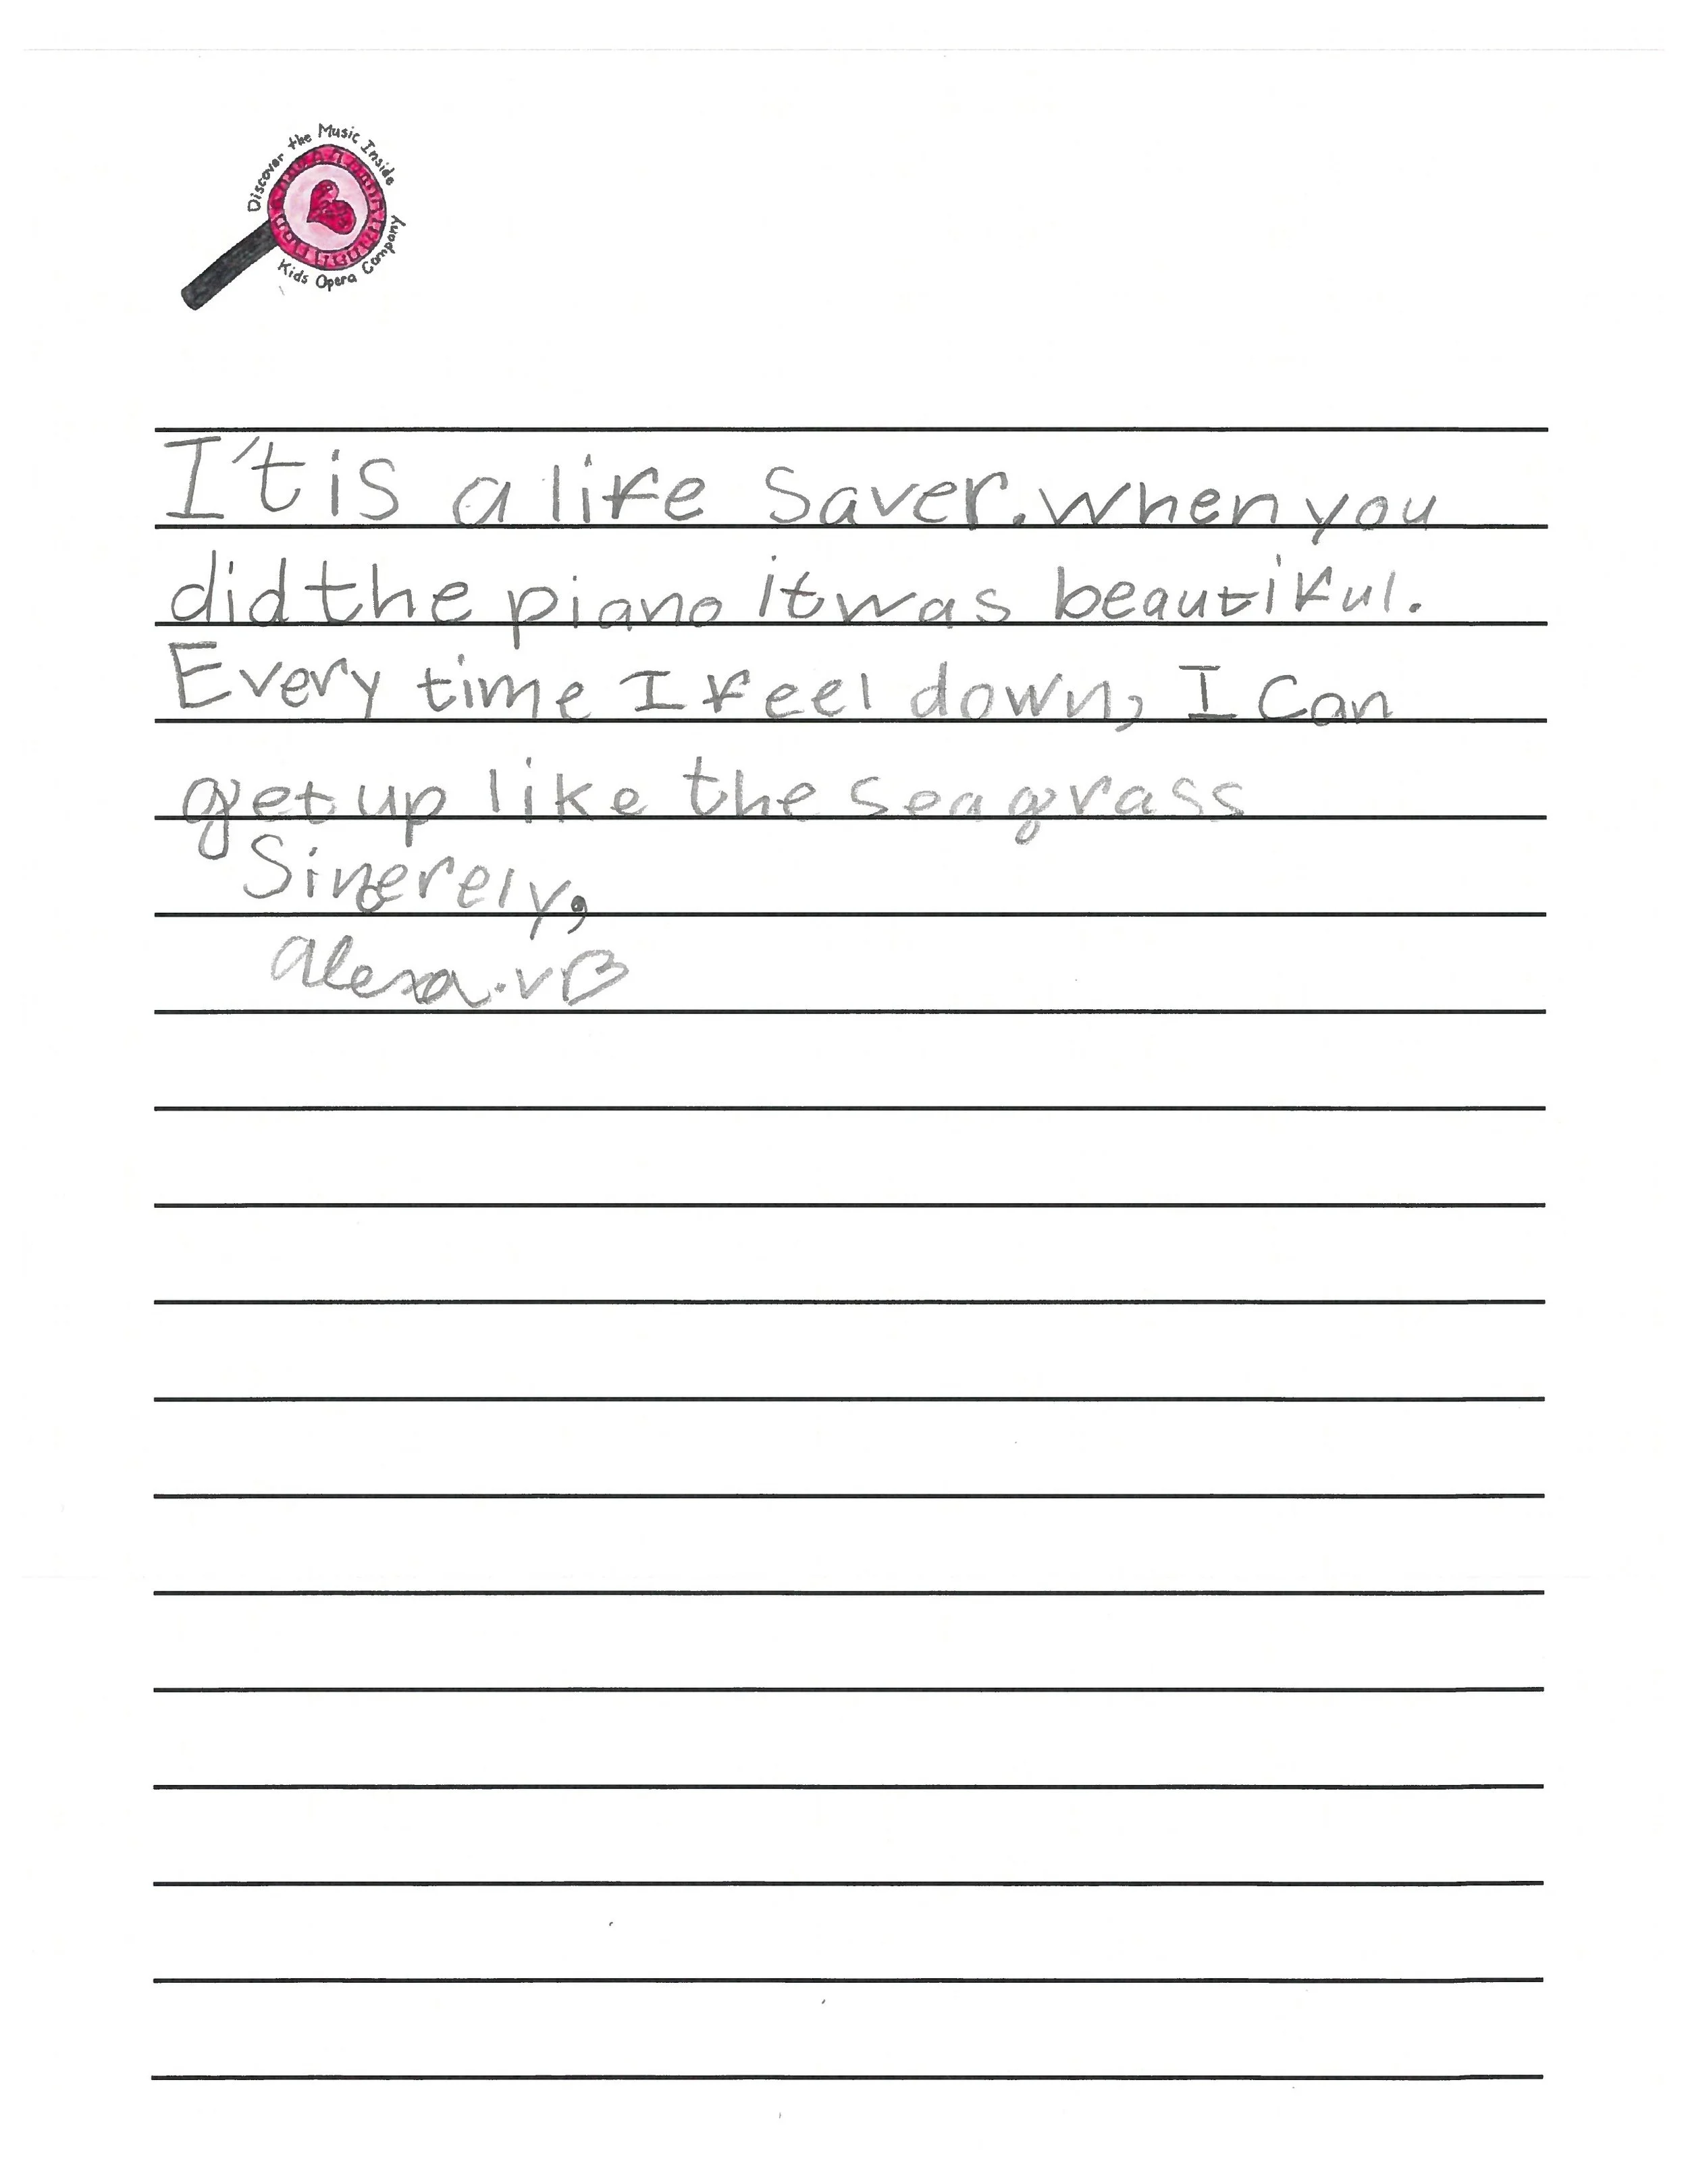 Discover the Music Inside
Kids Opera Company
I't is a life saver. when you
did the piano it was beautiful.
Every time I feel down, I can
get up like the seagrass
Sincerely,
alexa.v